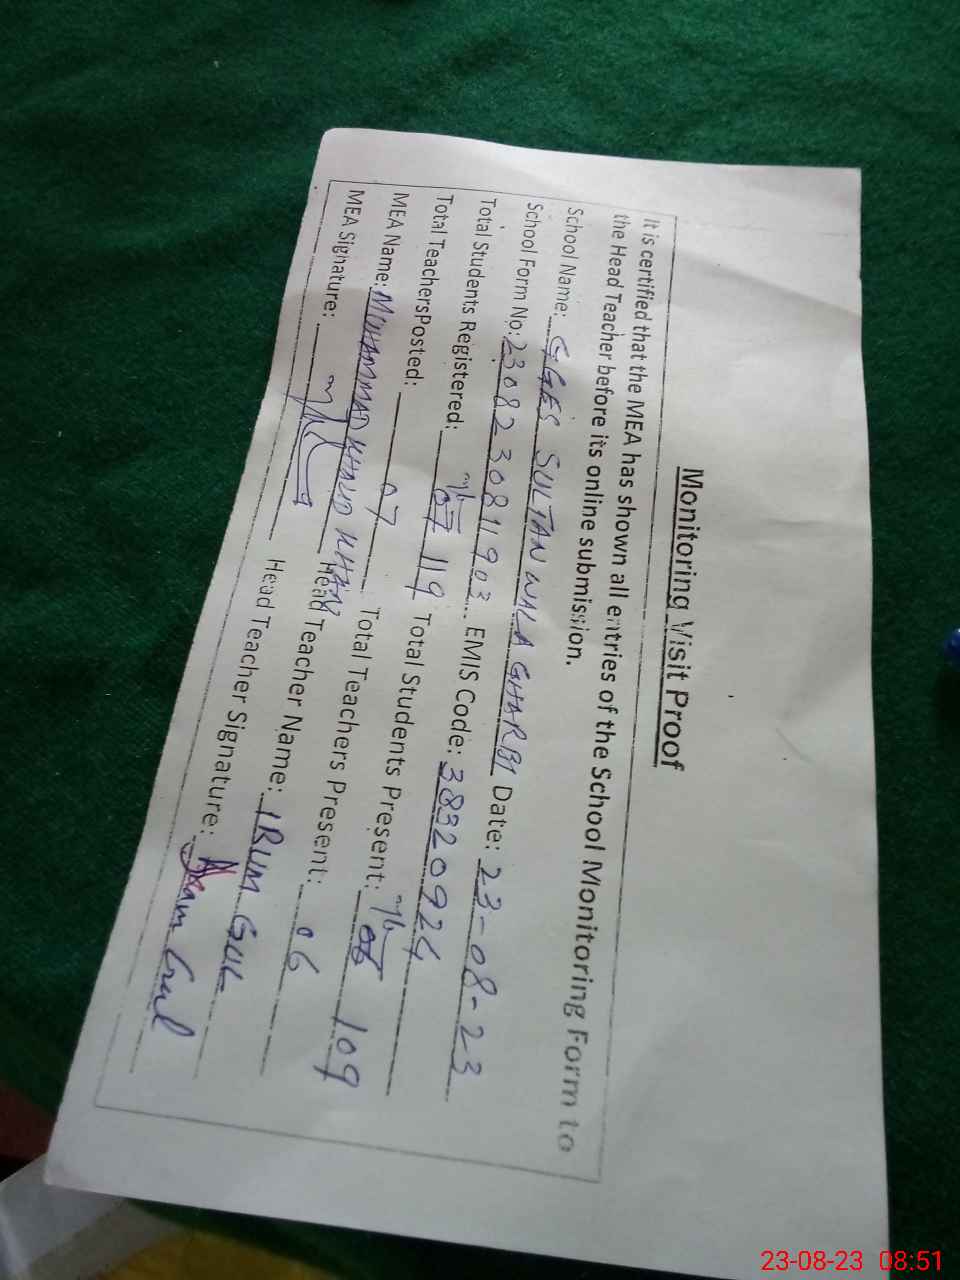 Monitoring Visit Proof
It is certified that the MEA has shown all entries of the School Monitoring Form to
the Head Teacher before its online submission.
School Name: GGES SULTAN WALA GHARBI Date: 23-08-23
School Form No: 2308230811903 EMIS Code: 38320924
Total Students Registered: 07 119 Total Students Present: 06 109
Total Teachers Posted: 07 Total Teachers Present: 06
MEA Name: MOHAMMAD KHALID KHAN Head Teacher Name: IRUM GUL
MEA Signature: Head Teacher Signature: Iram Gul
23-08-23 08:51